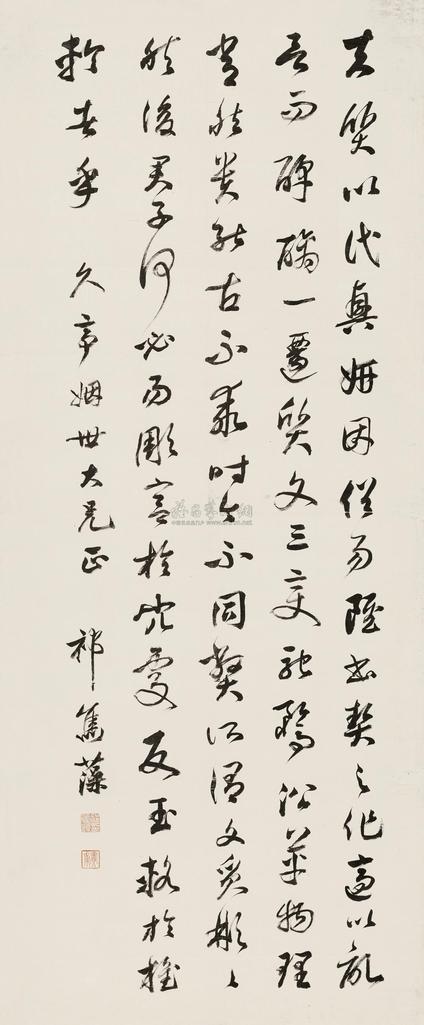 夫質以代興妍因俗易雖書契之作適以記
言而醇醨一遷質文三變馳騖沿革物理
常然貴能古不乖時今不同弊所謂文質彬々
然後君子何必易雕宮於穴處反玉輅於椎
輪者乎 久亭姻世大兄正 祁寯藻